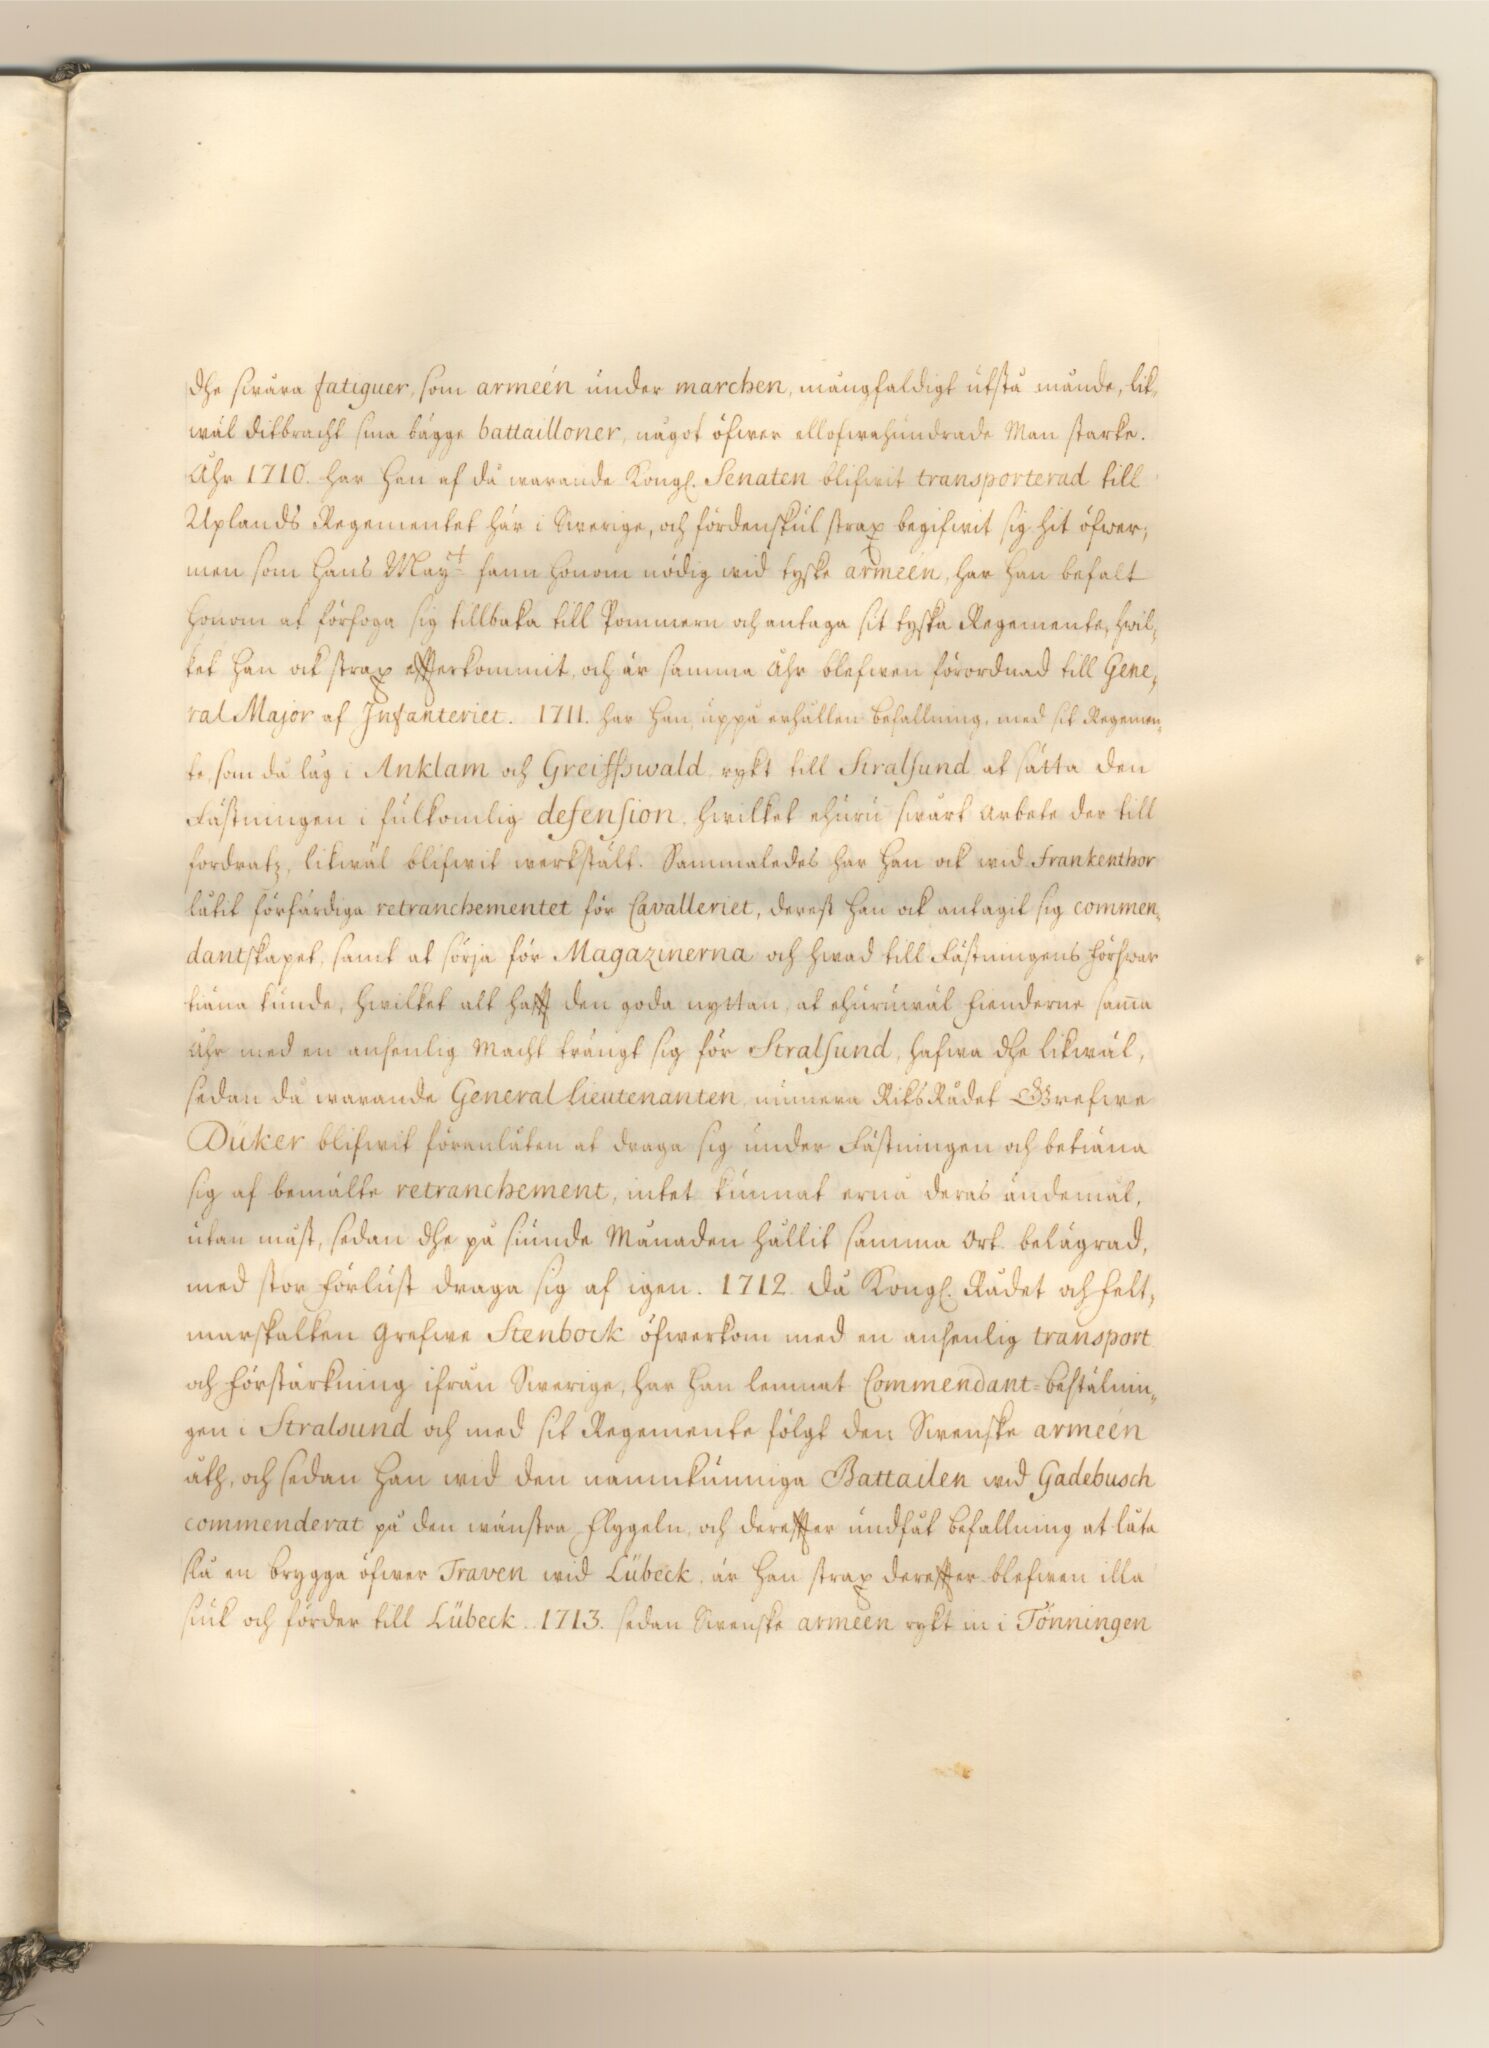 dhe swåra fatiguer, som armeén under marchen, mångfaldigt utstå månde, lik-
wäl ditbracht sina bägge battailloner, något öfwer ellofwahundrade Man starke.
Åhr 1710. har Han af då warande Kongl. Senaten blifwit transporterad till
Uplands Regementet här i Swerige, och fördenskul strax begifwit sig hit öfwer,
men som Hans May:t fann honom nödig wid tyske armeén, har han befalt
honom at förfoga sig tillbaka till Pommern och antaga sit tyska Regemente, hwil-
ket han ock strax effterkommit, och är samma Åhr blefwen förordnad till Gene-
ral Major af Infanteriet. 1711. har Han, uppå erhållen befallning, med sit Regemen-
te, som då låg i Anklam och Greiffswald, rykt till Stralsund, at sätta den
Fästningen i fulkomlig defension, hwilket ehuru swårt arbete der till
fordratz, likwäl blifwit werkstält. Sammaledes har Han ock wid Frankenthor
låtit förfärdiga retranchementet för Cavalleriet, derest Han ock antagit sig commen-
dantskapet, samt at sörja för Magazinerna och hwad till Fästningens förswar
tiäna kunde, hwilket alt hafft den goda nyttan, at ehuruwäl fienderne sam̅a
Åhr med en ansenlig Macht trängt sig för Stralsund, hafwa dhe likwäl,
sedan då warande General Lieutenanten, numera RiksRådet Grefwe
Düker blifwit föranlåten at draga sig under Fästningen och betiäna
sig af bemälte retranchement, intet kunnat ernå deras ändemål,
utan måst, sedan dhe på siunde Månaden hållit samma Ort belägrad,
med stor förlust draga sig af igen. 1712. då Kongl. Rådet och Felt-
marskalken Grefwe Stenbock öfwerkom med en ansenlig transport
och förstärkning ifrån Swerige, har han lemnat Commendant-beställnin-
gen i Stralsund och med sit Regemente följgt den Swenske armeén
åth, och sedan Han wid den namnkunniga Battailen wid Gadebusch
commenderat på den wänstra Flygeln, och dereffter undfåt befallning at låta
slå en brygga öfwer Traven wid Lübeck, är Han strax dereffter blefwen illa
siuk och förder till Lübeck. 1713. sedan Swenske armeén rykt in i Tönningen